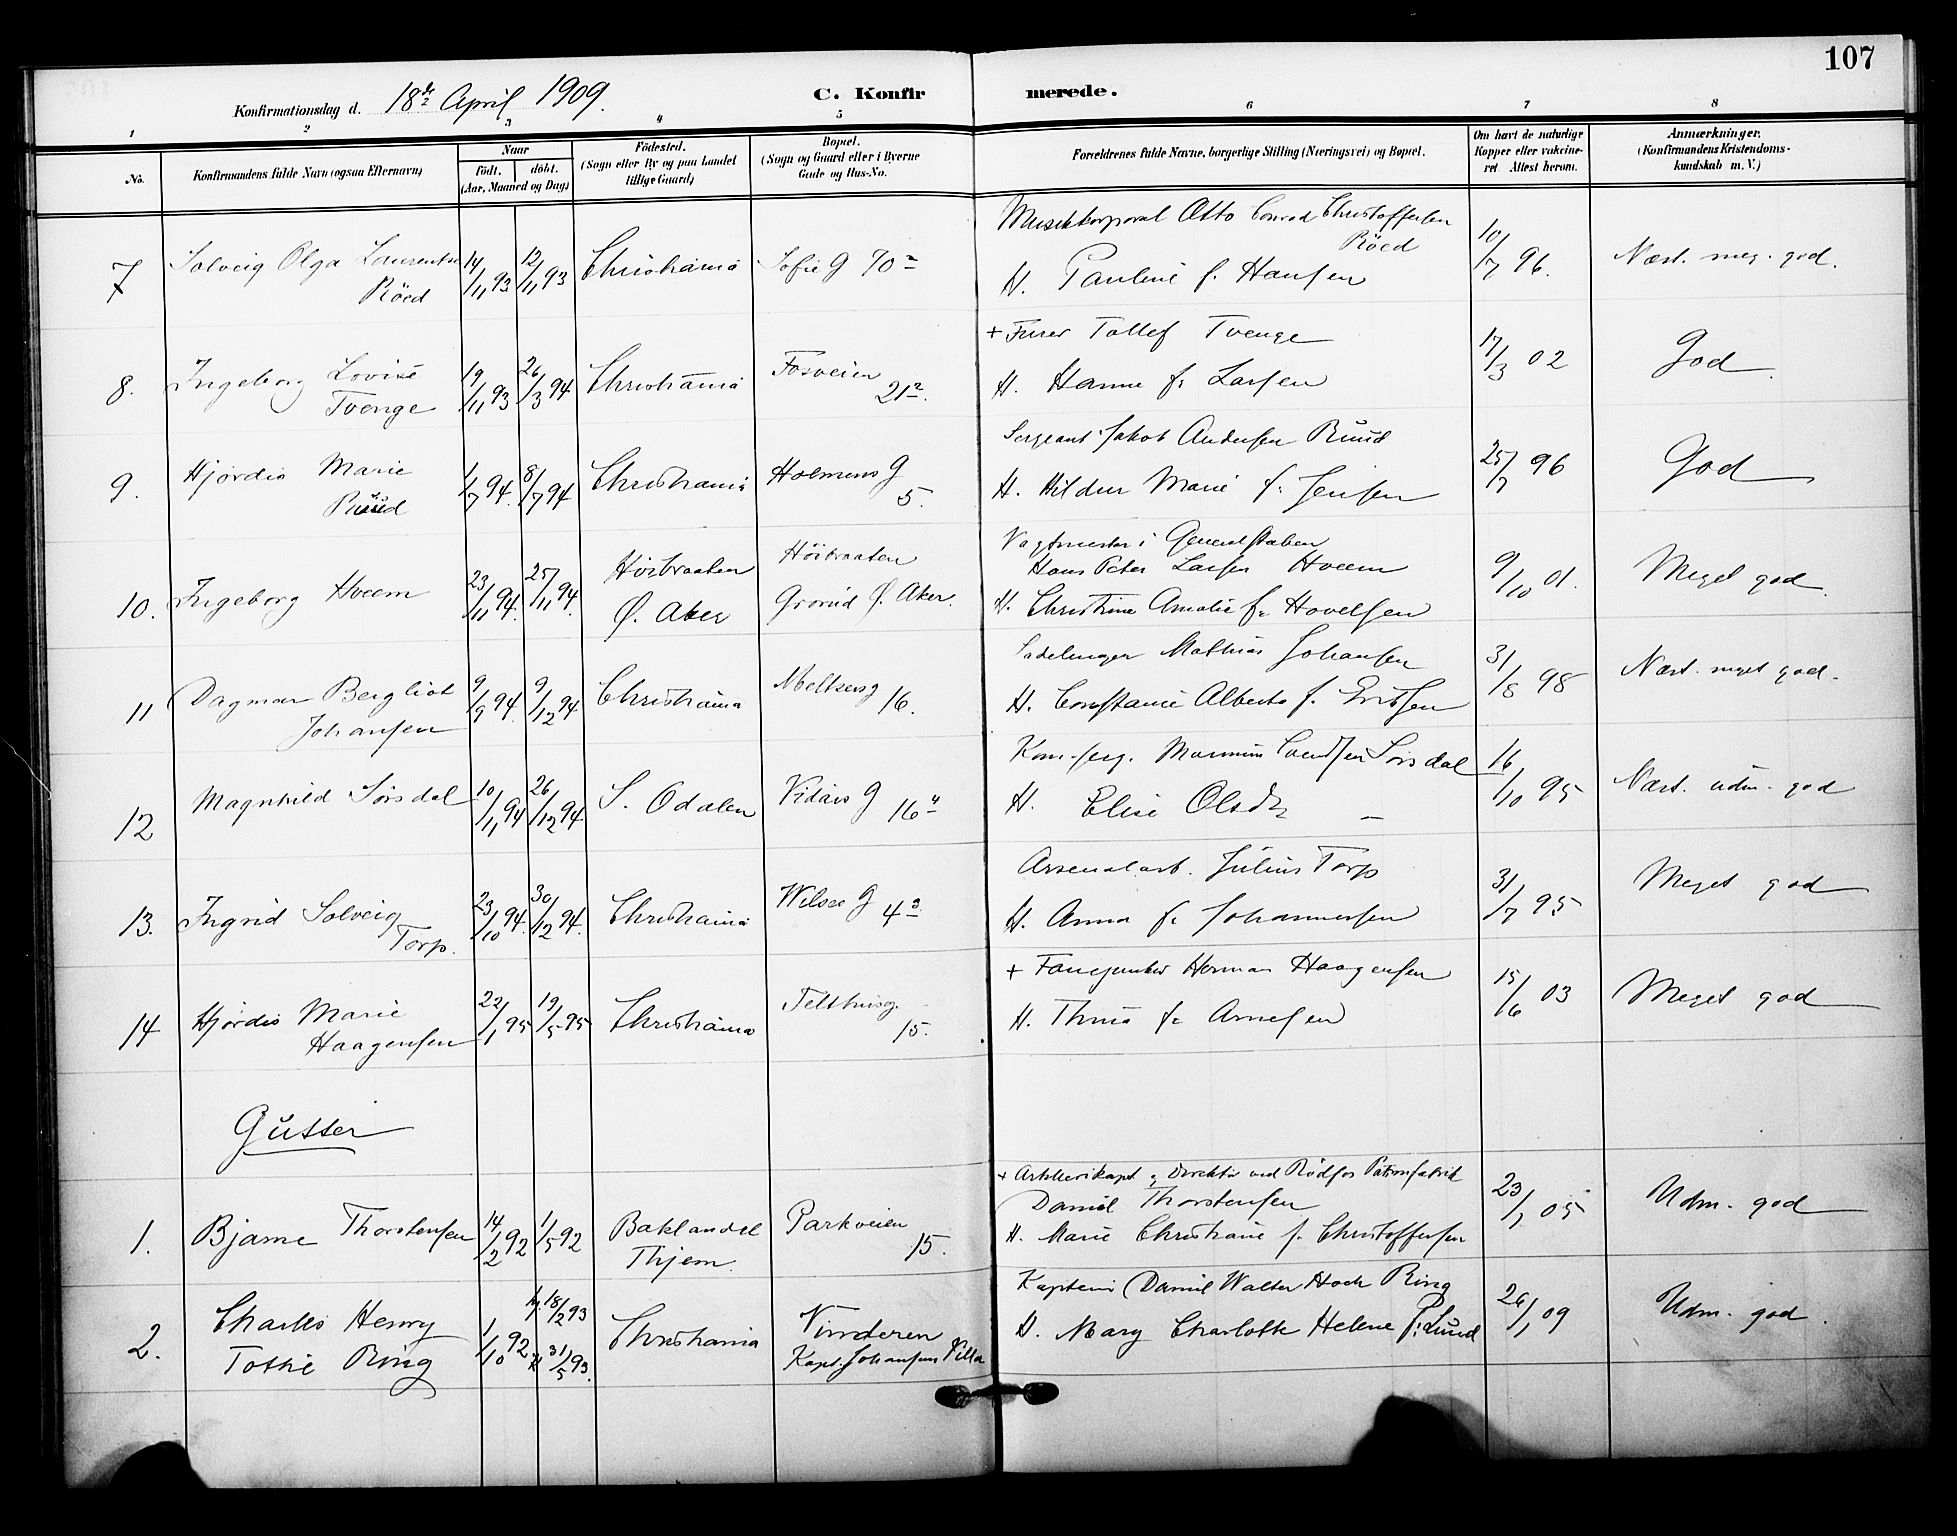 107
Konfirmationsdag d. 18de April 1909.
C. Konfirmerede.
1 2 3 4 5 6 7 8
No.
Konfirmandens fulde Navn (ogsaa Efternavn)
Naar
födt. döbt.
(Aar, Maaned og Dag)
Födested.
(Sogn eller By og paa Landet
tillige Gaard)
Bopæl.
(Sogn og Gaard eller i Byerne
Gade og Hus-No.
Forældrenes fulde Navne, borgerlige Stilling (Næringsvei) og Bopæl.
Om havt de naturlige
Kopper eller vakcine-
ret. Attest herom.
Anmærkninger.
(Konfirmandens Kristendoms-
kundskab m. V.)
7 Solveig Olga Laurentse Röed 14/11 93 12/11 93 Christiania Sofie G 70
Musikkorporal Otto Conrad Christoffersen Röed
H. Pauline f. Hansen
10/7 96. Næst. meg. god.
8. Ingeborg Lovise Tvenge 19/11 93 26/3 94 Christiania Fosveien 21
+ Furer Tollef Tvenge
H. Hanne f: Larsen
17/3 02 God
9. Hjørdis Marie Ruud 1/7 94. 8/7 94 Christiania Holmens G 5.
Sergeant Jakob Andersen Ruud
H. Hildur Marie f. Jensen
25/7 96 God
10. Ingeborg Hveem 23/11 94. 25/11 94. Høibraaten Ø. Aker Höibraaten Grorud Ø. Aker.
Vagtmester i Generalstaben
Hans Peter Larsen Hveem
H. Christine Amalie f. Hovelsen
9/10 01. Meget god.
11 Dagmar Bergliot Johansen 9/9 94. 9/12 94 Christiania Meltzersg 16.
Sadelmager Mathias Johansen
H. Constanse Alberta f. Eriksen
31/8 98 Næst. meget god.
12 Magnhild Sörsdal 10/11 94 26/12 94 S. Odalen Vidars G 16
Kom. serg. Svendsen Sörsdal
H. Elise Olsdr
16/10 95 Næst. udm. god
13. Ingrid Solveig Torp. 23/10 94. 30/12 94. Christiania Wilses G 4
Arsenalarb. Julius Torp
H. Anna f. Johannessen
31/7 95 Meget god
14 Hjørdis Marie Haagensen 22/1 95 19/5 95 Christiania Telthusg. 15.
+ Fanejunker Herman Haagensen
H. Thina f. Arnesen
15/6 03 Meget god
Gutter
1. Bjarne Thorstensen 14/2 92 1/5 92 Baklandet Thjem. Parkveien 15.
+ Artillerikapt. og Direktör ved Rödfos Patronfabrik
Daniel Thorstensen
H. Marie Christiane f. Christoffersen
23/1 05 Udm. god
2. Charles Henry Tothie Ring 1/10 92 hj. 18/2 93 K 31/5 93. Christiania Vinderen Kapt. Johansens Villa
Kaptein Daniel Walter Hoch Ring
H. Mary Charlotte Helene f: Lund
26/1 09 Udm. god.